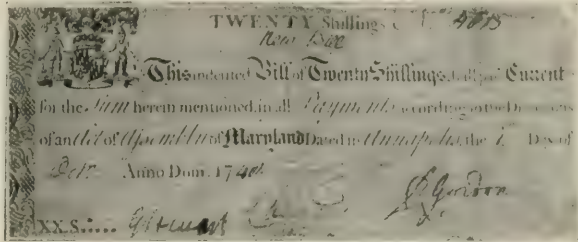 TWENTY Shillings
New Bill
This indented Bill of Twenty Shillings shall pass Current
for the Sum herein mentioned, in all Payments according to the Directions
of an Act of Assembly of Maryland Dated in Annapolis, the 1 Day of
Anno Dom. 174
XX.S. G Steuart Gordon